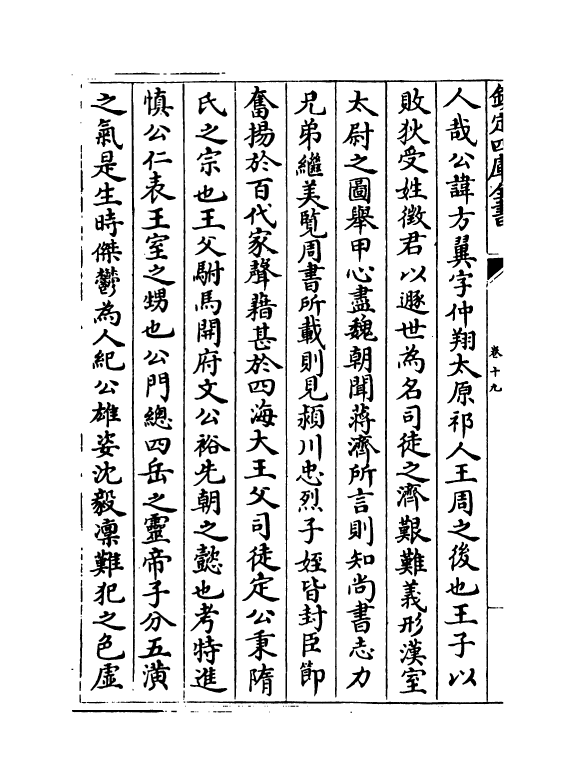 欽定四庫全書
卷十九
人哉公諱方翼字仲翔太原祁人王周之後也王子以
敗狄受姓徵君以遯世為名司徒之濟艱難義形漢室
太尉之圖舉甲心盡魏朝聞蔣濟所言則知尚書志力
兄弟繼美覽周書所載則見潁川忠烈子姪皆封臣節
奮揚於百代家聲藉甚於四海大王父司徒定公秉隋
氏之宗也王父駙馬開府文公裕先朝之懿也考特進
慎公仁表王室之甥也公門總四岳之靈帝子分五潢
之氣是生時傑鬱為人紀公雄姿沈毅凜難犯之色虛